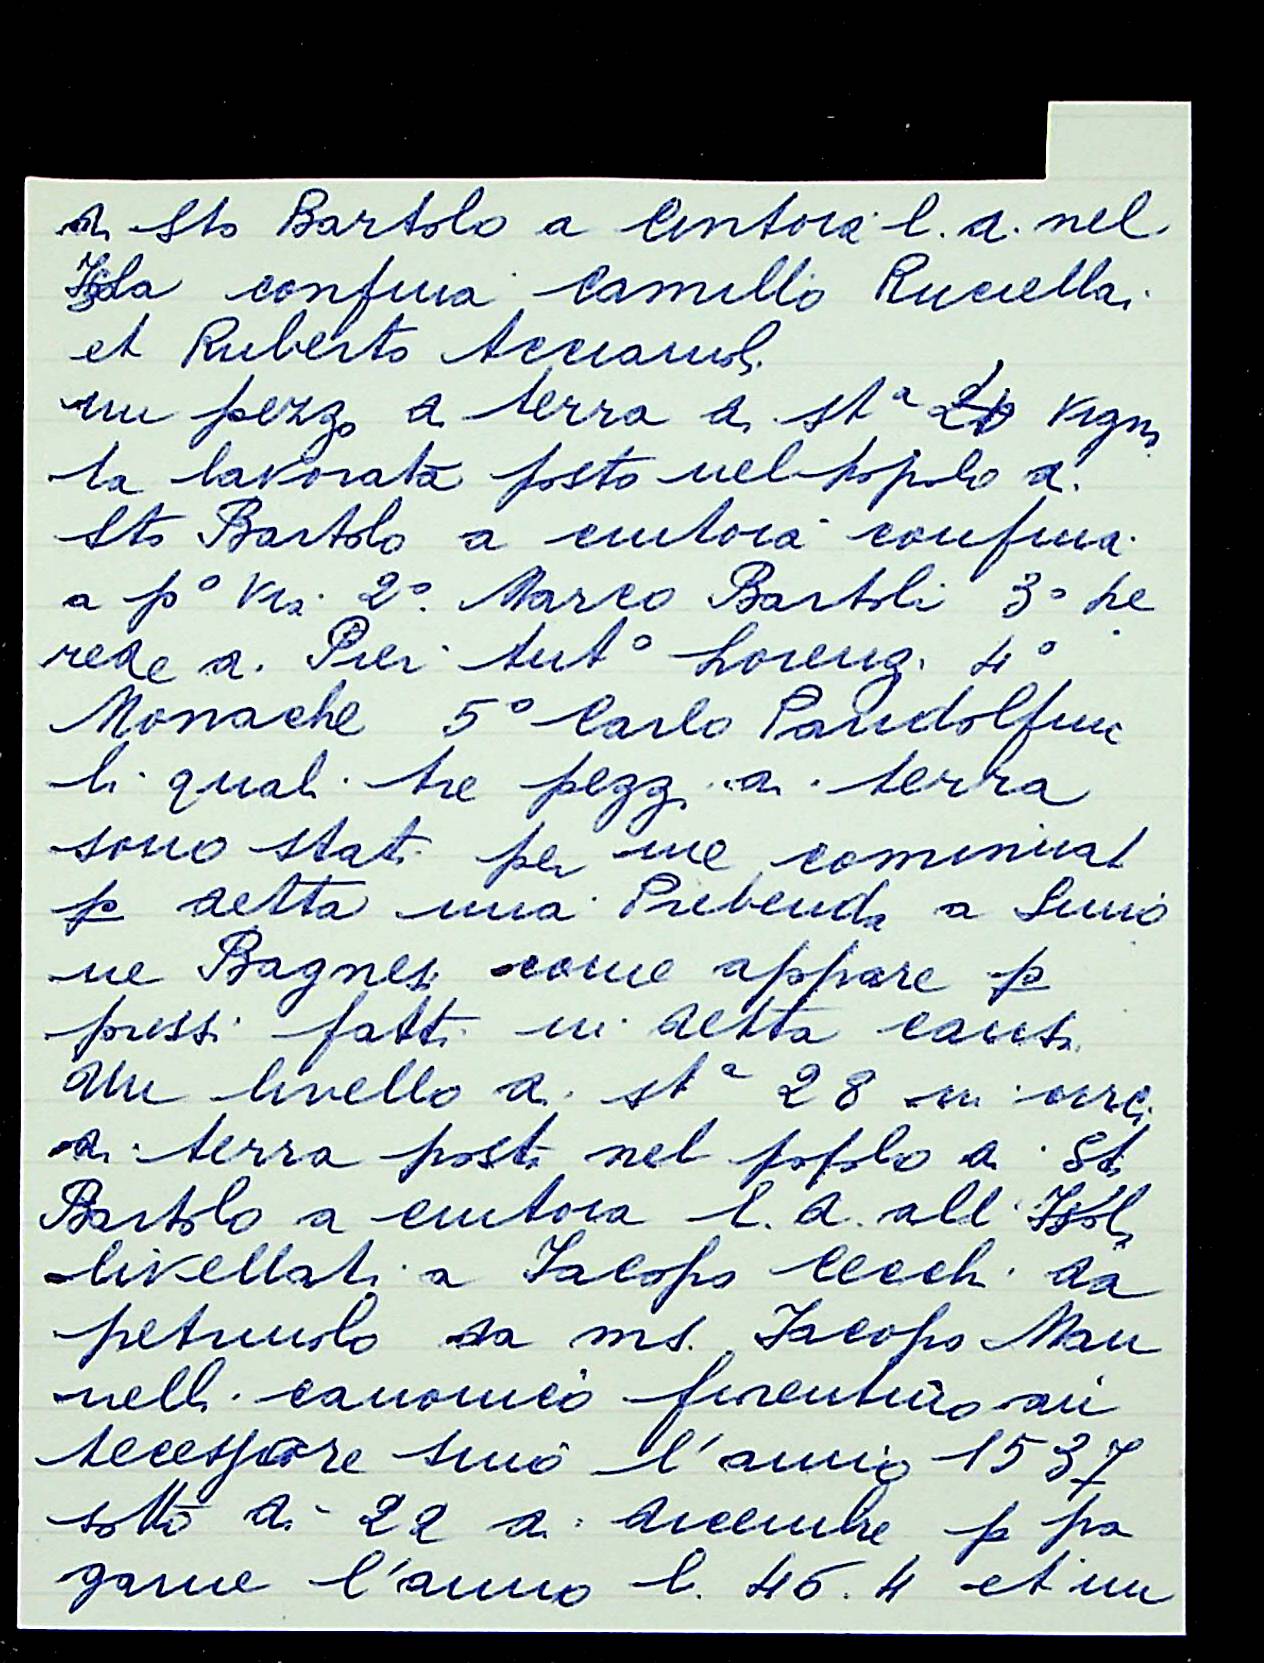 di Sto Bartolo a Cintoia l. d. nel
Isola confina Camillo Rucellai
et Ruberto Acciaiuoli
un pezzo di terra di sta vigna
ta lavorata posto nel popolo di
Sto Bartolo a cintoia confina
a po via 2o Marco Bartoli 3o he
rede di Pier Anto Lorenzi 4o
Monache 5o Carlo Pandolfini
li quali tre pezzi di terra
sono stati per me
p detta mia Prebenda a Simo
ne Bagnesi come appare p
fatti in detta causa
Un livello di sta 28 in
di terra posti nel popolo di Sto
Bartolo a cintoia l. d. all' Isola
livellati a Iacopo Cecchi da
petriuolo da ms. Iacopo Man
nelli canonico fiorentino an
tecessore sino l'anno 1537
sotto di 22 di dicembre p pa
garne l'anno l. 46.4 et un